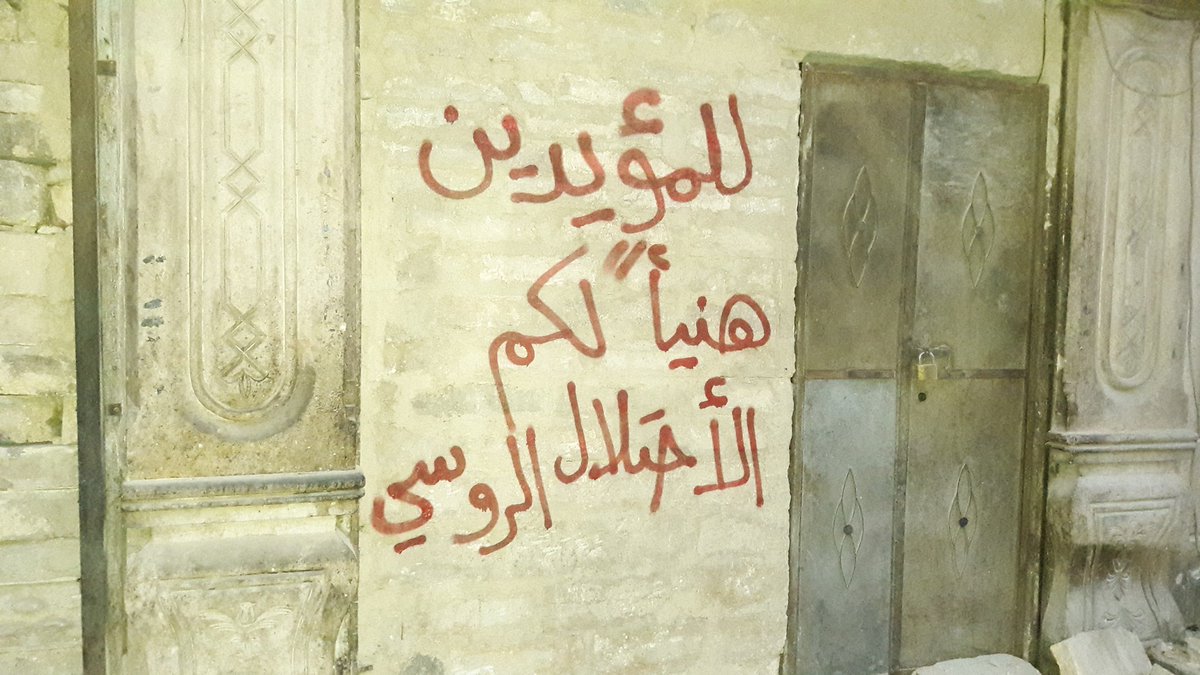 للمؤيدين
هنيأ" لكم
الأحتلال الروسي